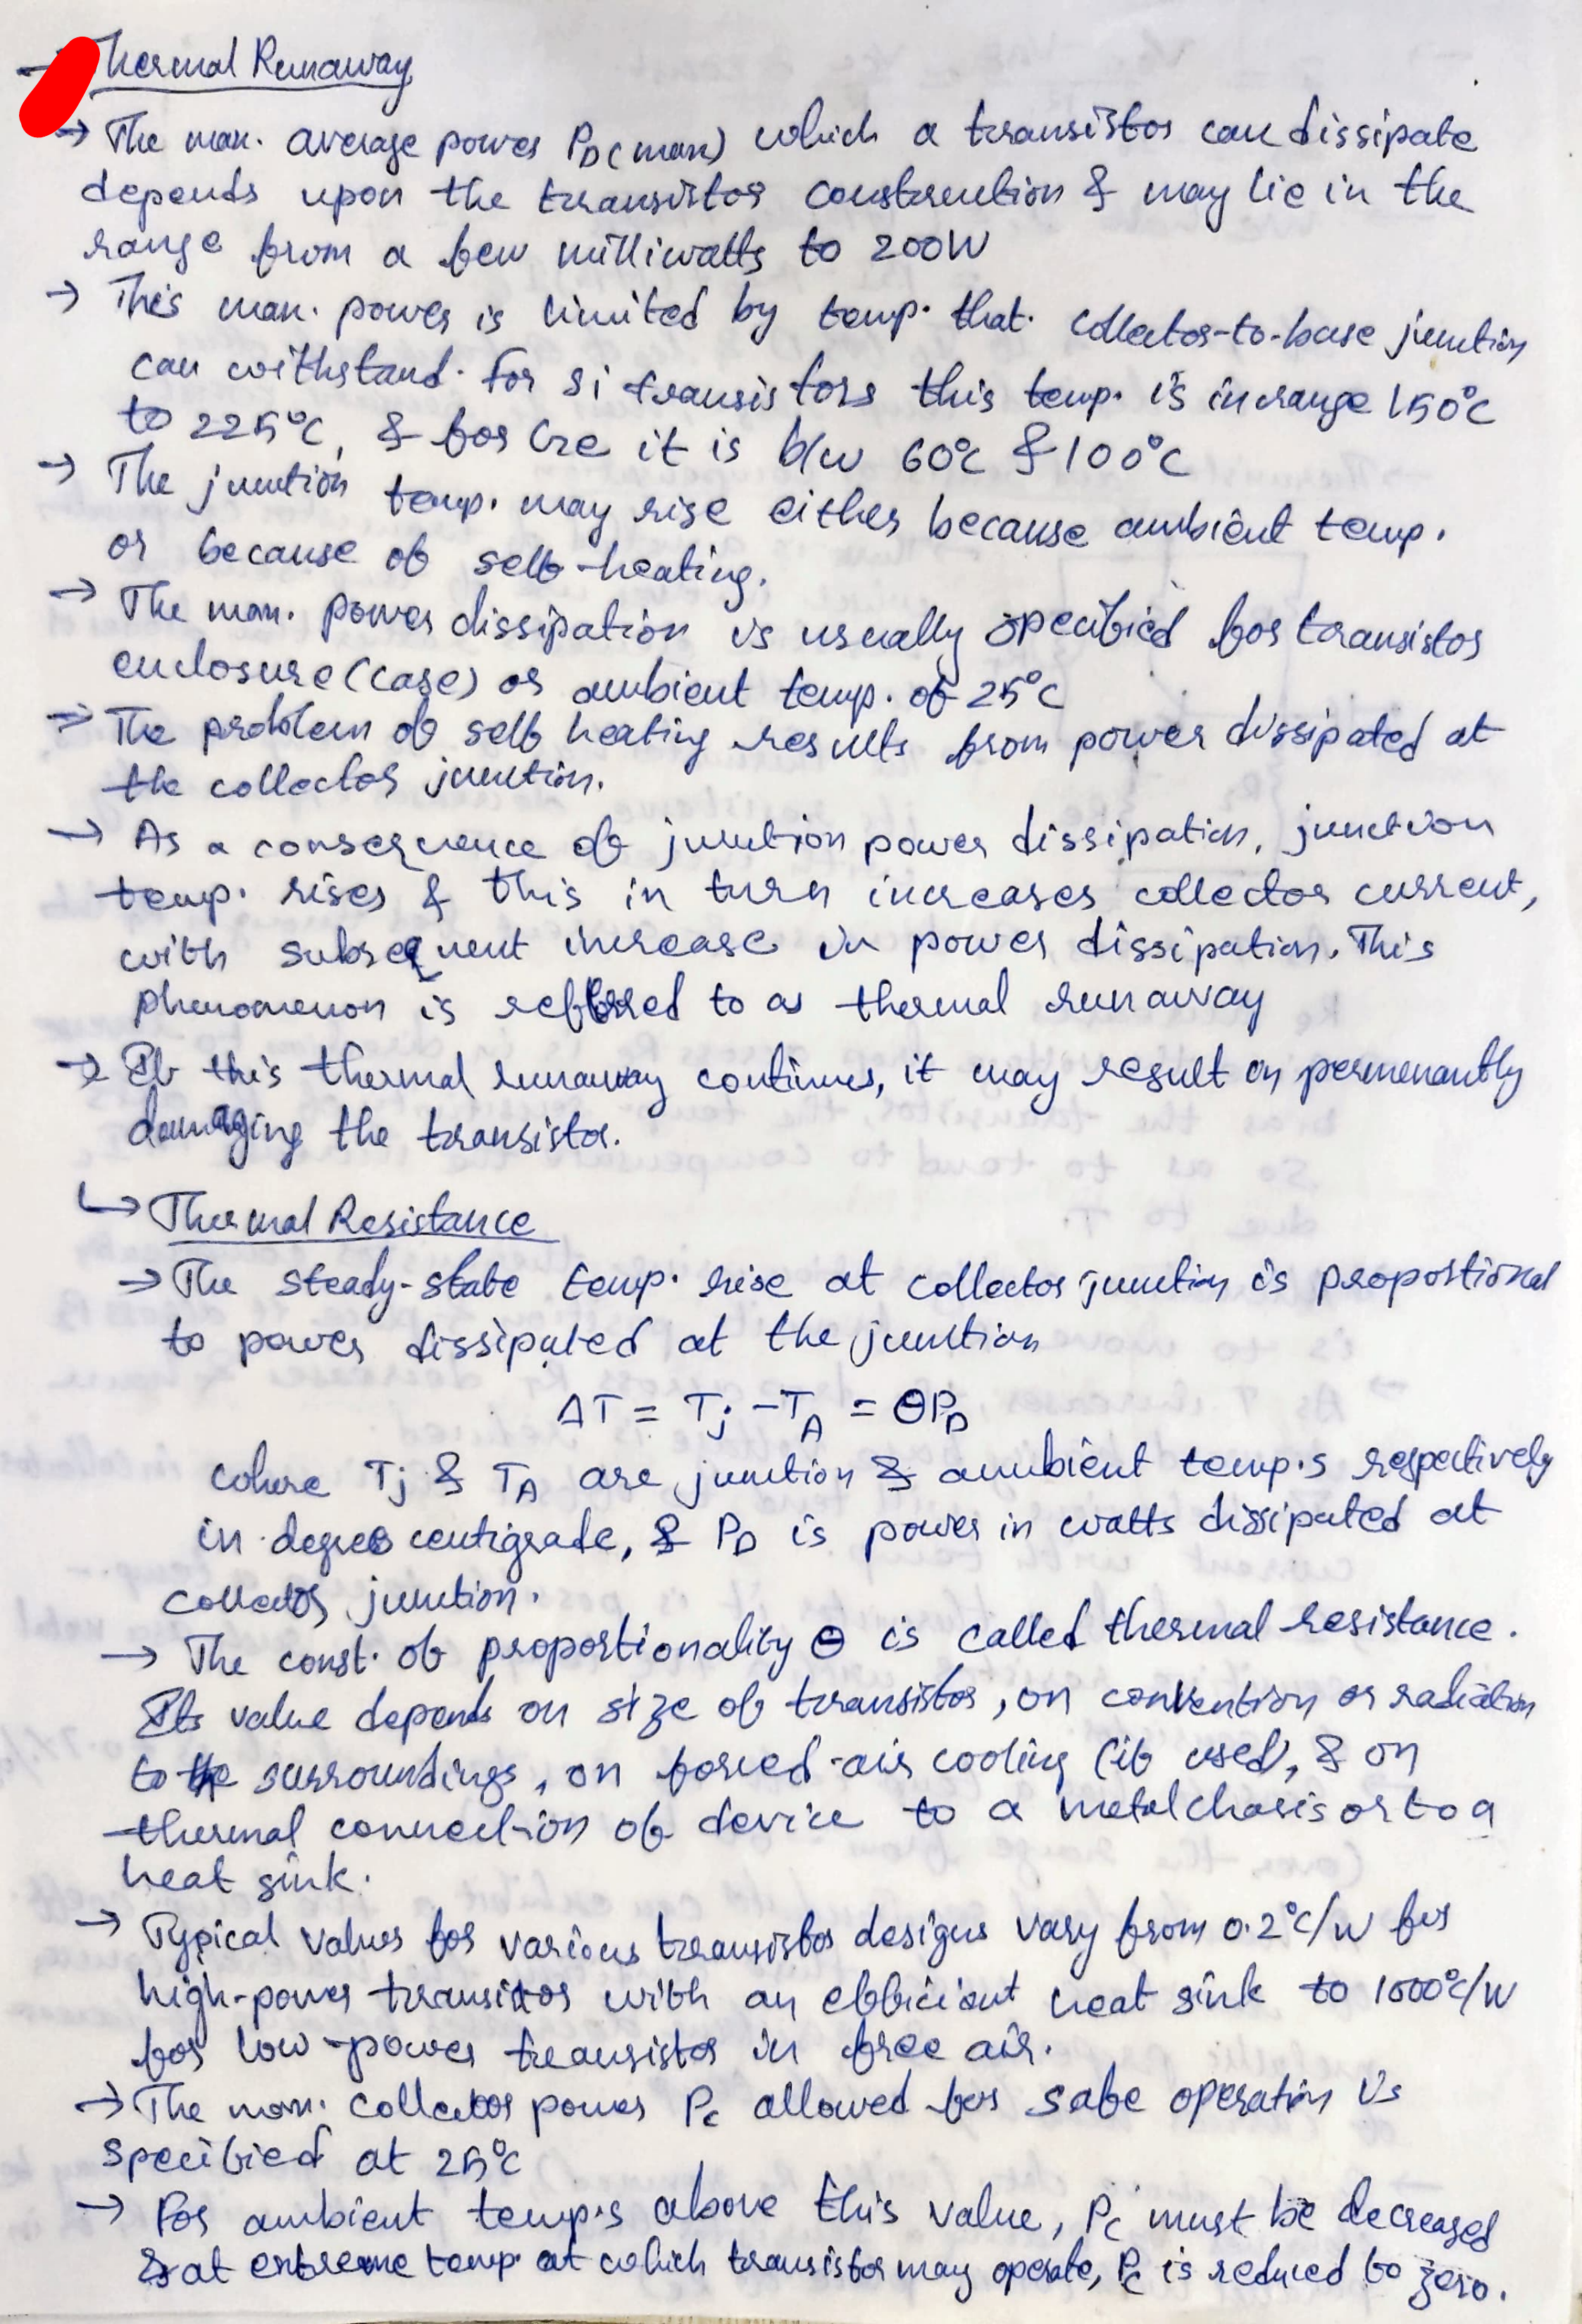 → Thermal Runaway
→ The max. average power PD(max) which a transistor can dissipate
depends upon the transistor construction & may lie in the
range from a few milliwatts to 200W
→ This max. power is limited by temp. that collector-to-base junction
can withstand. For Si transistors this temp. is in range 150°C
to 225°C, & for Ge it is b/w 60°C & 100°C
→ The junction temp. may rise either because ambient temp.
or because of self-heating.
→ The max. power dissipation is usually specified for transistor
enclosure (case) or ambient temp. of 25°C
→ The problem of self heating results from power dissipated at
the collector junction.
→ As a consequence of junction power dissipation, junction
temp. rises & this in turn increases collector current,
with subsequent increase in power dissipation. This
phenomenon is referred to as thermal runaway
→ If this thermal runaway continues, it may result on permenantly
damaging the transistor.
↳ Thermal Resistance
→ The steady-state temp. rise at collector junction is proportional
to power dissipated at the junction
ΔT = Tj - TA = θPD
where Tj & TA are junction & ambient temp.s respectively
in degree centigrade, & PD is power in watts dissipated at
collector junction.
→ The const. of proportionality θ is called thermal resistance.
Its value depends on size of transistor, on convention or radiation
to the surroundings, on forced-air cooling (if used), & on
thermal connection of device to a metal chasis or to a
heat sink.
→ Typical values for various transistor designs vary from 0.2°C/W for
high-power transistor with an efficient heat sink to 1000°C/W
for low-power transistor in free air.
→ The max. collector power Pc allowed for safe operation is
specified at 25°C
→ For ambient temp.s above this value, Pc must be decreased
& at extreme temp. at which transistor may operate, Pc is reduced to zero.